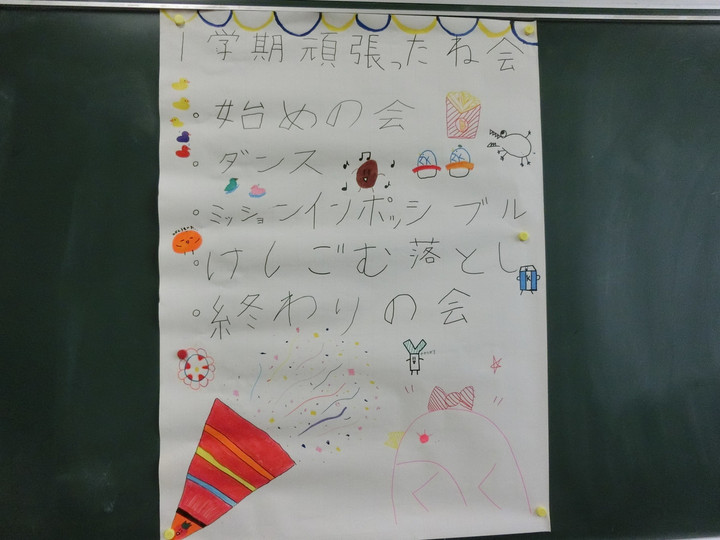 1学期頑張ったね会
。始めの会
。ダンス
。ミッションインポッシブル
。けしごむ落とし
。終わりの会